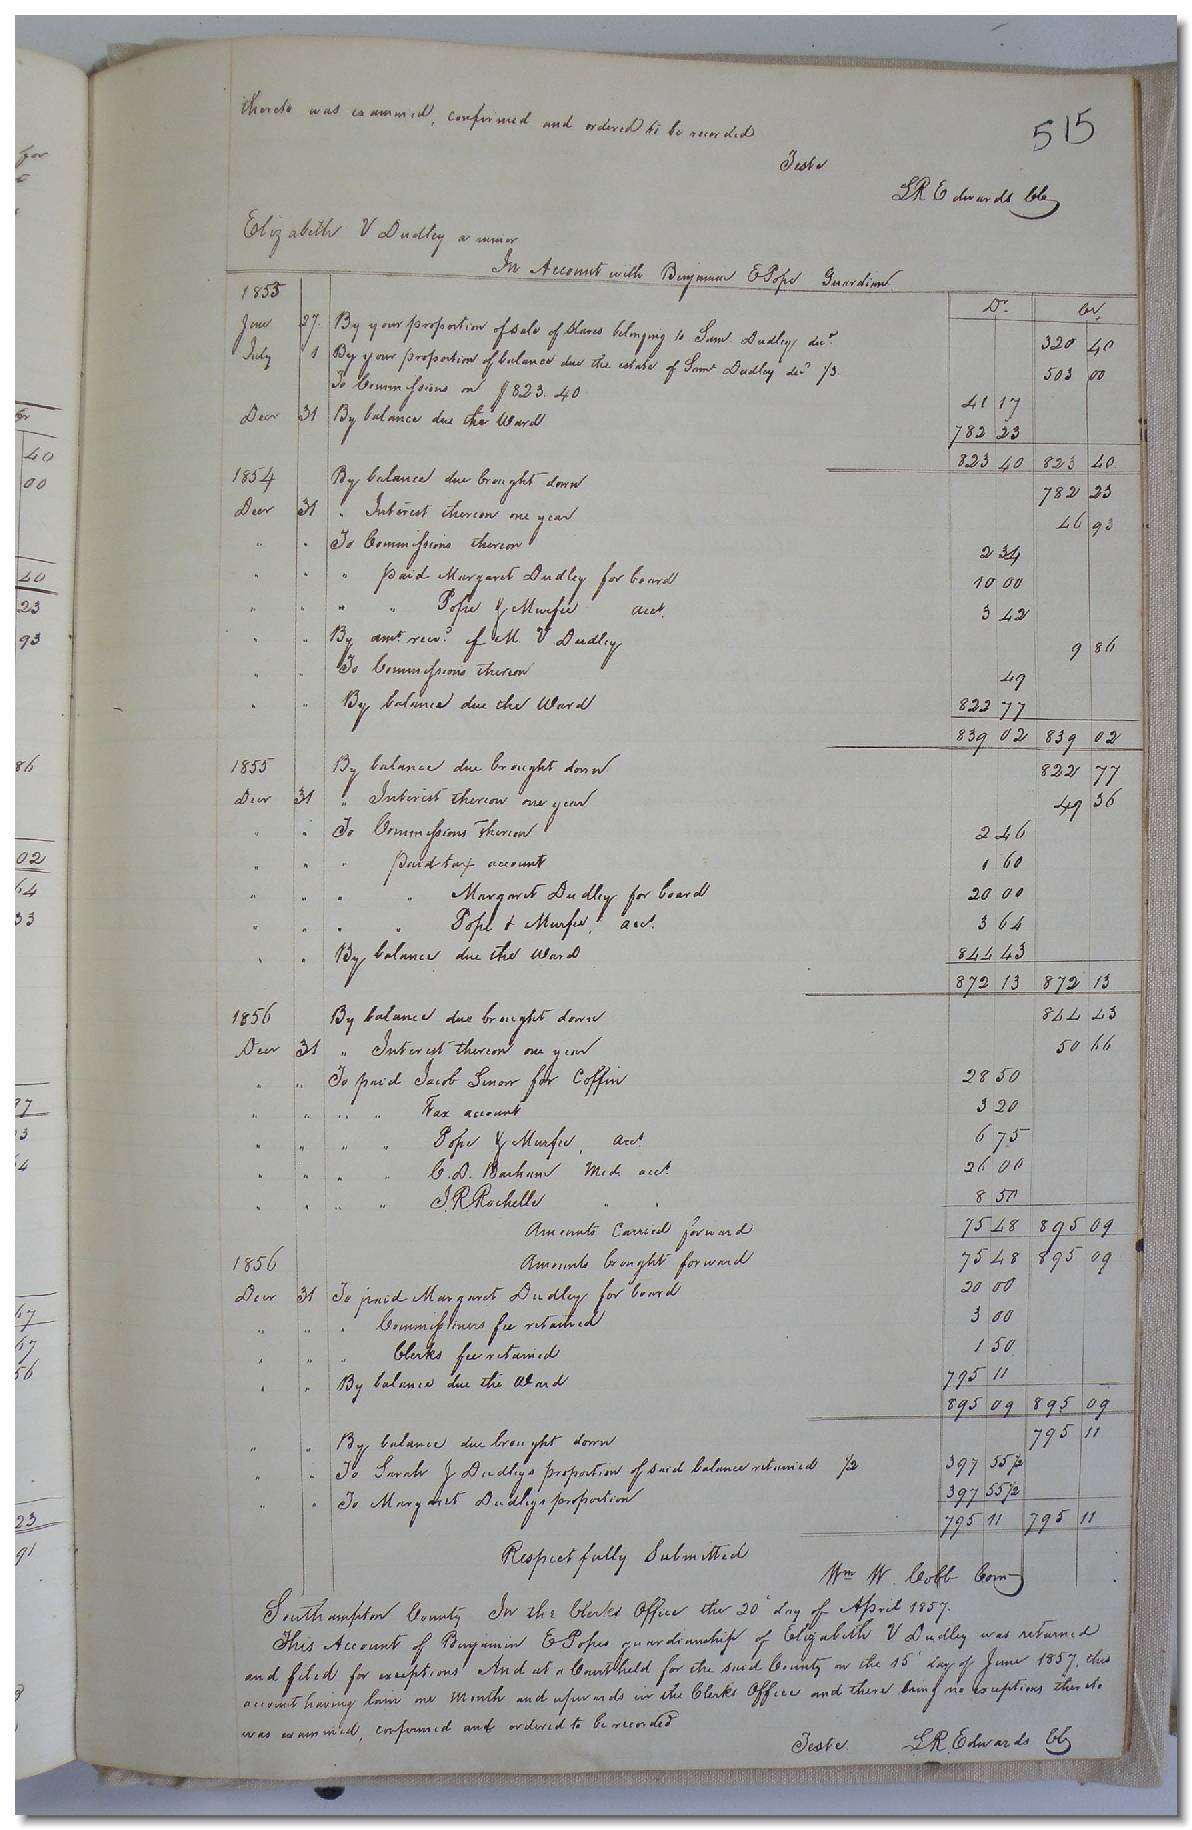 515
thereto was examined, confirmed and ordered to be recorded
Teste
L R Edwards Clk
Elizabeth V Dudley a minor
In Account with Benjamin E Pope Guardian
Dr. Cr.
1853
June 27. By your proportion of sale of slaves belonging to Saml. Dudley decd. 320 40
July 1 By your proportion of balance due the estate of Saml Dudley decd 1/3 503 00
To Commissions on $823.40 41 17
Decr 31 By balance due the Ward 782 23
823 40 823 40
1854 By balance due brought down 782 23
Decr 31 " Interest thereon one year 46 93
" " To Commissions thereon 2 34
" " " paid Margaret Dudley for board 10 00
" " " " Pope & Murfee acct. 3 42
" " By amt. recd. of M. V Dudley 9 86
" " To Commissions thereon 49
" " By balance due the Ward 822 77
839 02 839 02
1855 By balance due brought down 822 77
Decr 31 " Interest thereon one year 49 36
" " To Commissions thereon 2 46
" " " paid tax account 1 60
" " " " Margaret Dudley for board 20 00
" " " " Pope & Murfee, acc. 3 64
" " By balance due the Ward 844 43
872 13 872 13
1856 By balance due brought down 844 43
Decr 31 " Interest thereon one year 50 66
" " To paid Jacob for Coffin 28 50
" " " " Tax account 3 20
" " " " Pope & Murfee, acct 6 75
" " " " C. D. Barham Med. acct. 26 00
" " " " J. R. Rochelle " " 8 50
Amounts Carried forward 75 48 895 09
1856 Amounts brought forward 75 48 895 09
Decr 31 To paid Margaret Dudley for board 20 00
" " " Commissioners fee retained 3 00
" " " Clerks fee retained 1 50
" " By balance due the Ward 795 11
895 09 895 09
" " By balance due brought down 795 11
" " To Sarah J Dudleys proportion of said balance retained 1/2 397 55 1/2
" " To Margaret Dudleys proportion 397 55 1/2
795 11 795 11
Respectfully Submitted
Wm W. Cobb Com
Southampton County In the Clerks Office the 20 day of April 1857.
This Account of Benjamin E Popes guardianship of Elizabeth V Dudley was returned
and filed for exceptions And at a Court held for the said County on the 15 day of June 1857, this
account having lain one Month and upwards in the Clerks Office and there being no exceptions thereto
was examined, confirmed and ordered to be recorded
Teste. L R. Edwards Clk